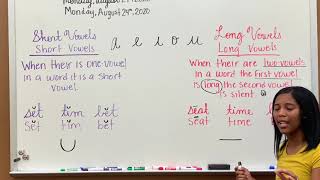 Monday, August 24th, 2020
Short Vowels
Short Vowels
a e i o u
Long Vowels
Long Vowels
When their is one vowel
in a word it is a short
vowel
When their are two vowels
in a word the first vowel
is long the second vowel
is silent
sĕt tĭm bĕt
Sĕt tĭm bĕt
sēat tīme
Sēat tīme